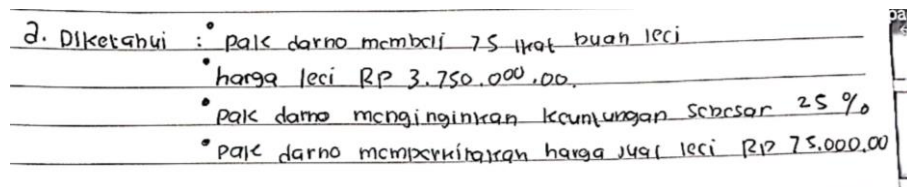 2. Diketahui : • pak darno membeli 75 ikat buah leci
• harga leci RP 3.750.000,00.
• pak darno menginginkan keuntungan sebesar 25 %
• pak darno memperkirakan harga jual leci RP 75.000,00